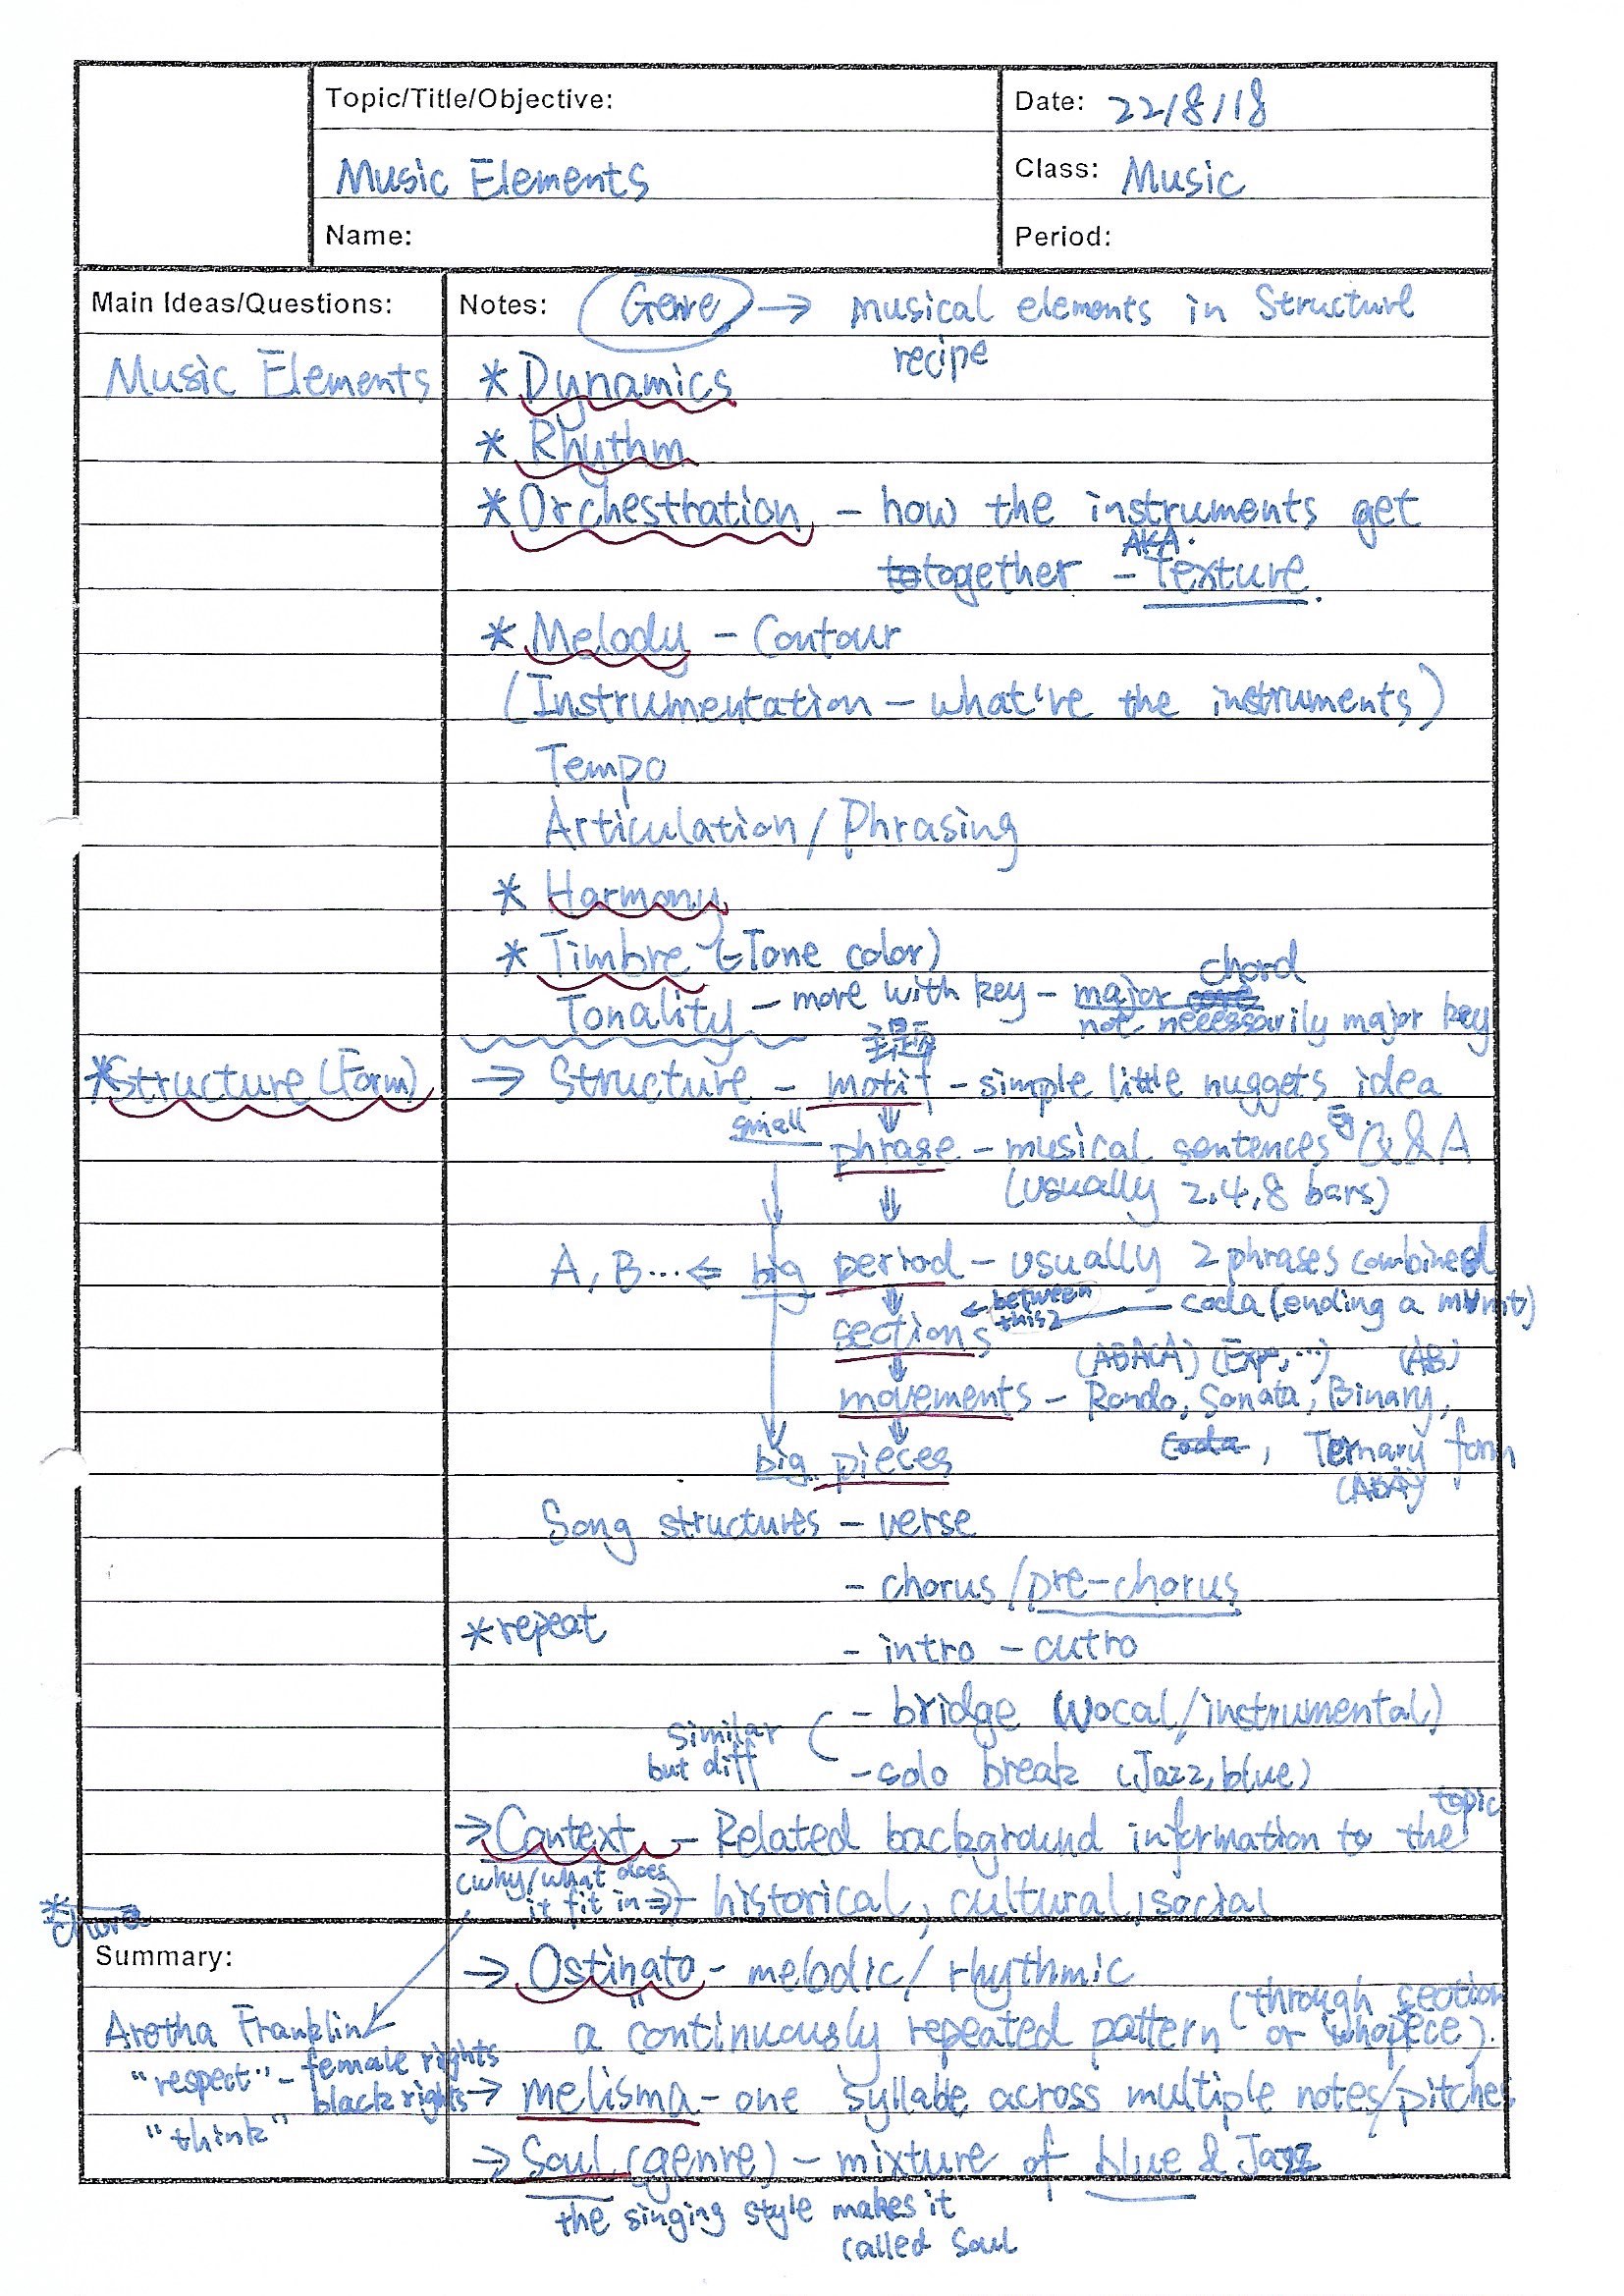 Topic/Title/Objective:
Date: 22/8/18
Music Elements
Class: Music
Name:
Period:
Main Ideas/Questions:
Notes: Genre → musical elements in structure
recipe
Music Elements
* Dynamics
* Rhythm
* Orchestration - how the instruments get
together - Texture.
AKA.
* Melody - Contour
(Instrumentation - what're the instruments)
Tempo
Articulation / Phrasing
* Harmony
* Timbre (-Tone color)
Tonality - more with key - major chord
not necessarily major key
主题
*Structure (Form)
→ Structure - motif - simple little nuggets idea
small phrase - musical sentences eg. Q & A
(usually 2.4,8 bars)
A, B... ⇐ big period - usually 2 phrases combined
sections ← between this 2 coda (ending a mvmt)
(ABA(A)) (Exp, ...) (AB)
movements - Rondo, Sonata, Binary,
coda, Ternary form
(ABA)
big pieces
Song structures - verse
- chorus / pre-chorus
*repeat
- intro - outro
- bridge (vocal/instrumental)
similar but diff
- solo break (Jazz, blue)
→ Context - Related background information to the topic
(why/what does it fit in →) - historical, cultural, social
Summary:
→ Ostinato - melodic / rhythmic
"
a continuously repeated pattern (through section or piece).
Aretha Franklin
"respect" - female rights
black rights
"think"
→ melisma - one syllable across multiple notes/pitches
→ Soul (genre) - mixture of blue & Jazz
the singing style makes it
called Soul